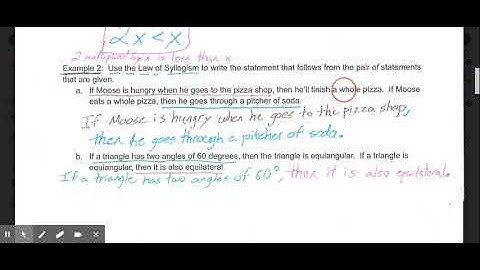 2x < x
2 multiplied by x is less than x
Example 2: Use the Law of Syllogism to write the statement that follows from the pair of statements
that are given.
a. If Moose is hungry when he goes to the pizza shop, then he'll finish a whole pizza. If Moose
eats a whole pizza, then he goes through a pitcher of soda.
If Moose is hungry when he goes to the pizza shop,
then he goes through a pitcher of soda.
b. If a triangle has two angles of 60 degrees, then the triangle is equiangular. If a triangle is
equiangular, then it is also equilateral.
If a triangle has two angles of 60°, then it is also equilateral.